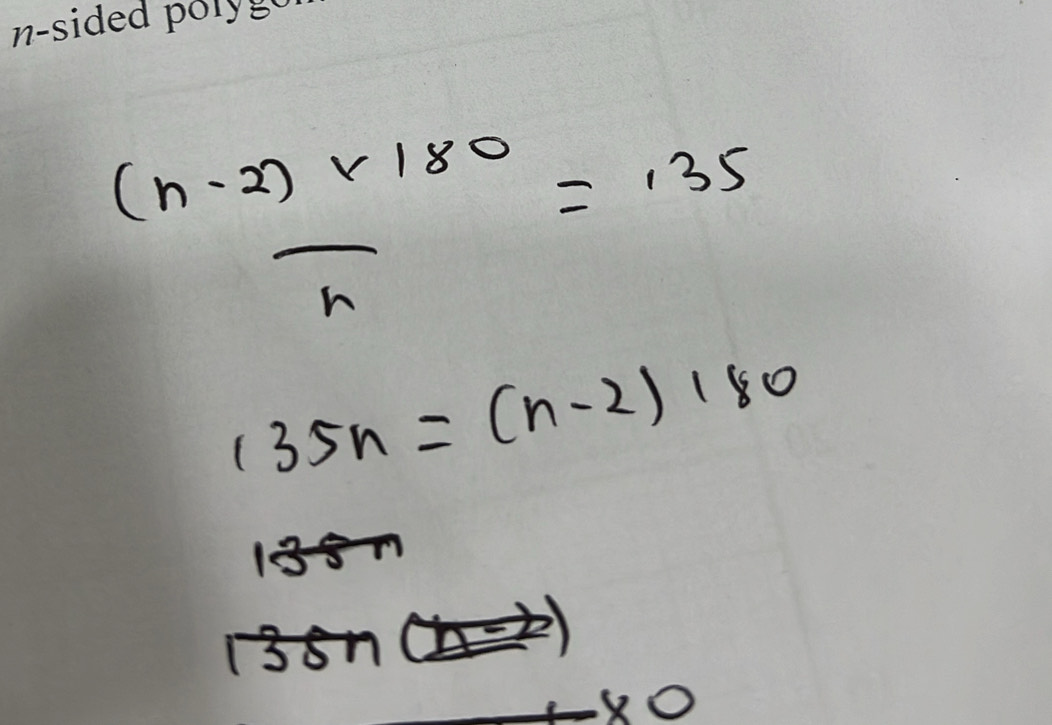 n-sided polygon
(n-2) × 180 = 135
n
135n = (n-2) 180
135n
135n (n-2)
80